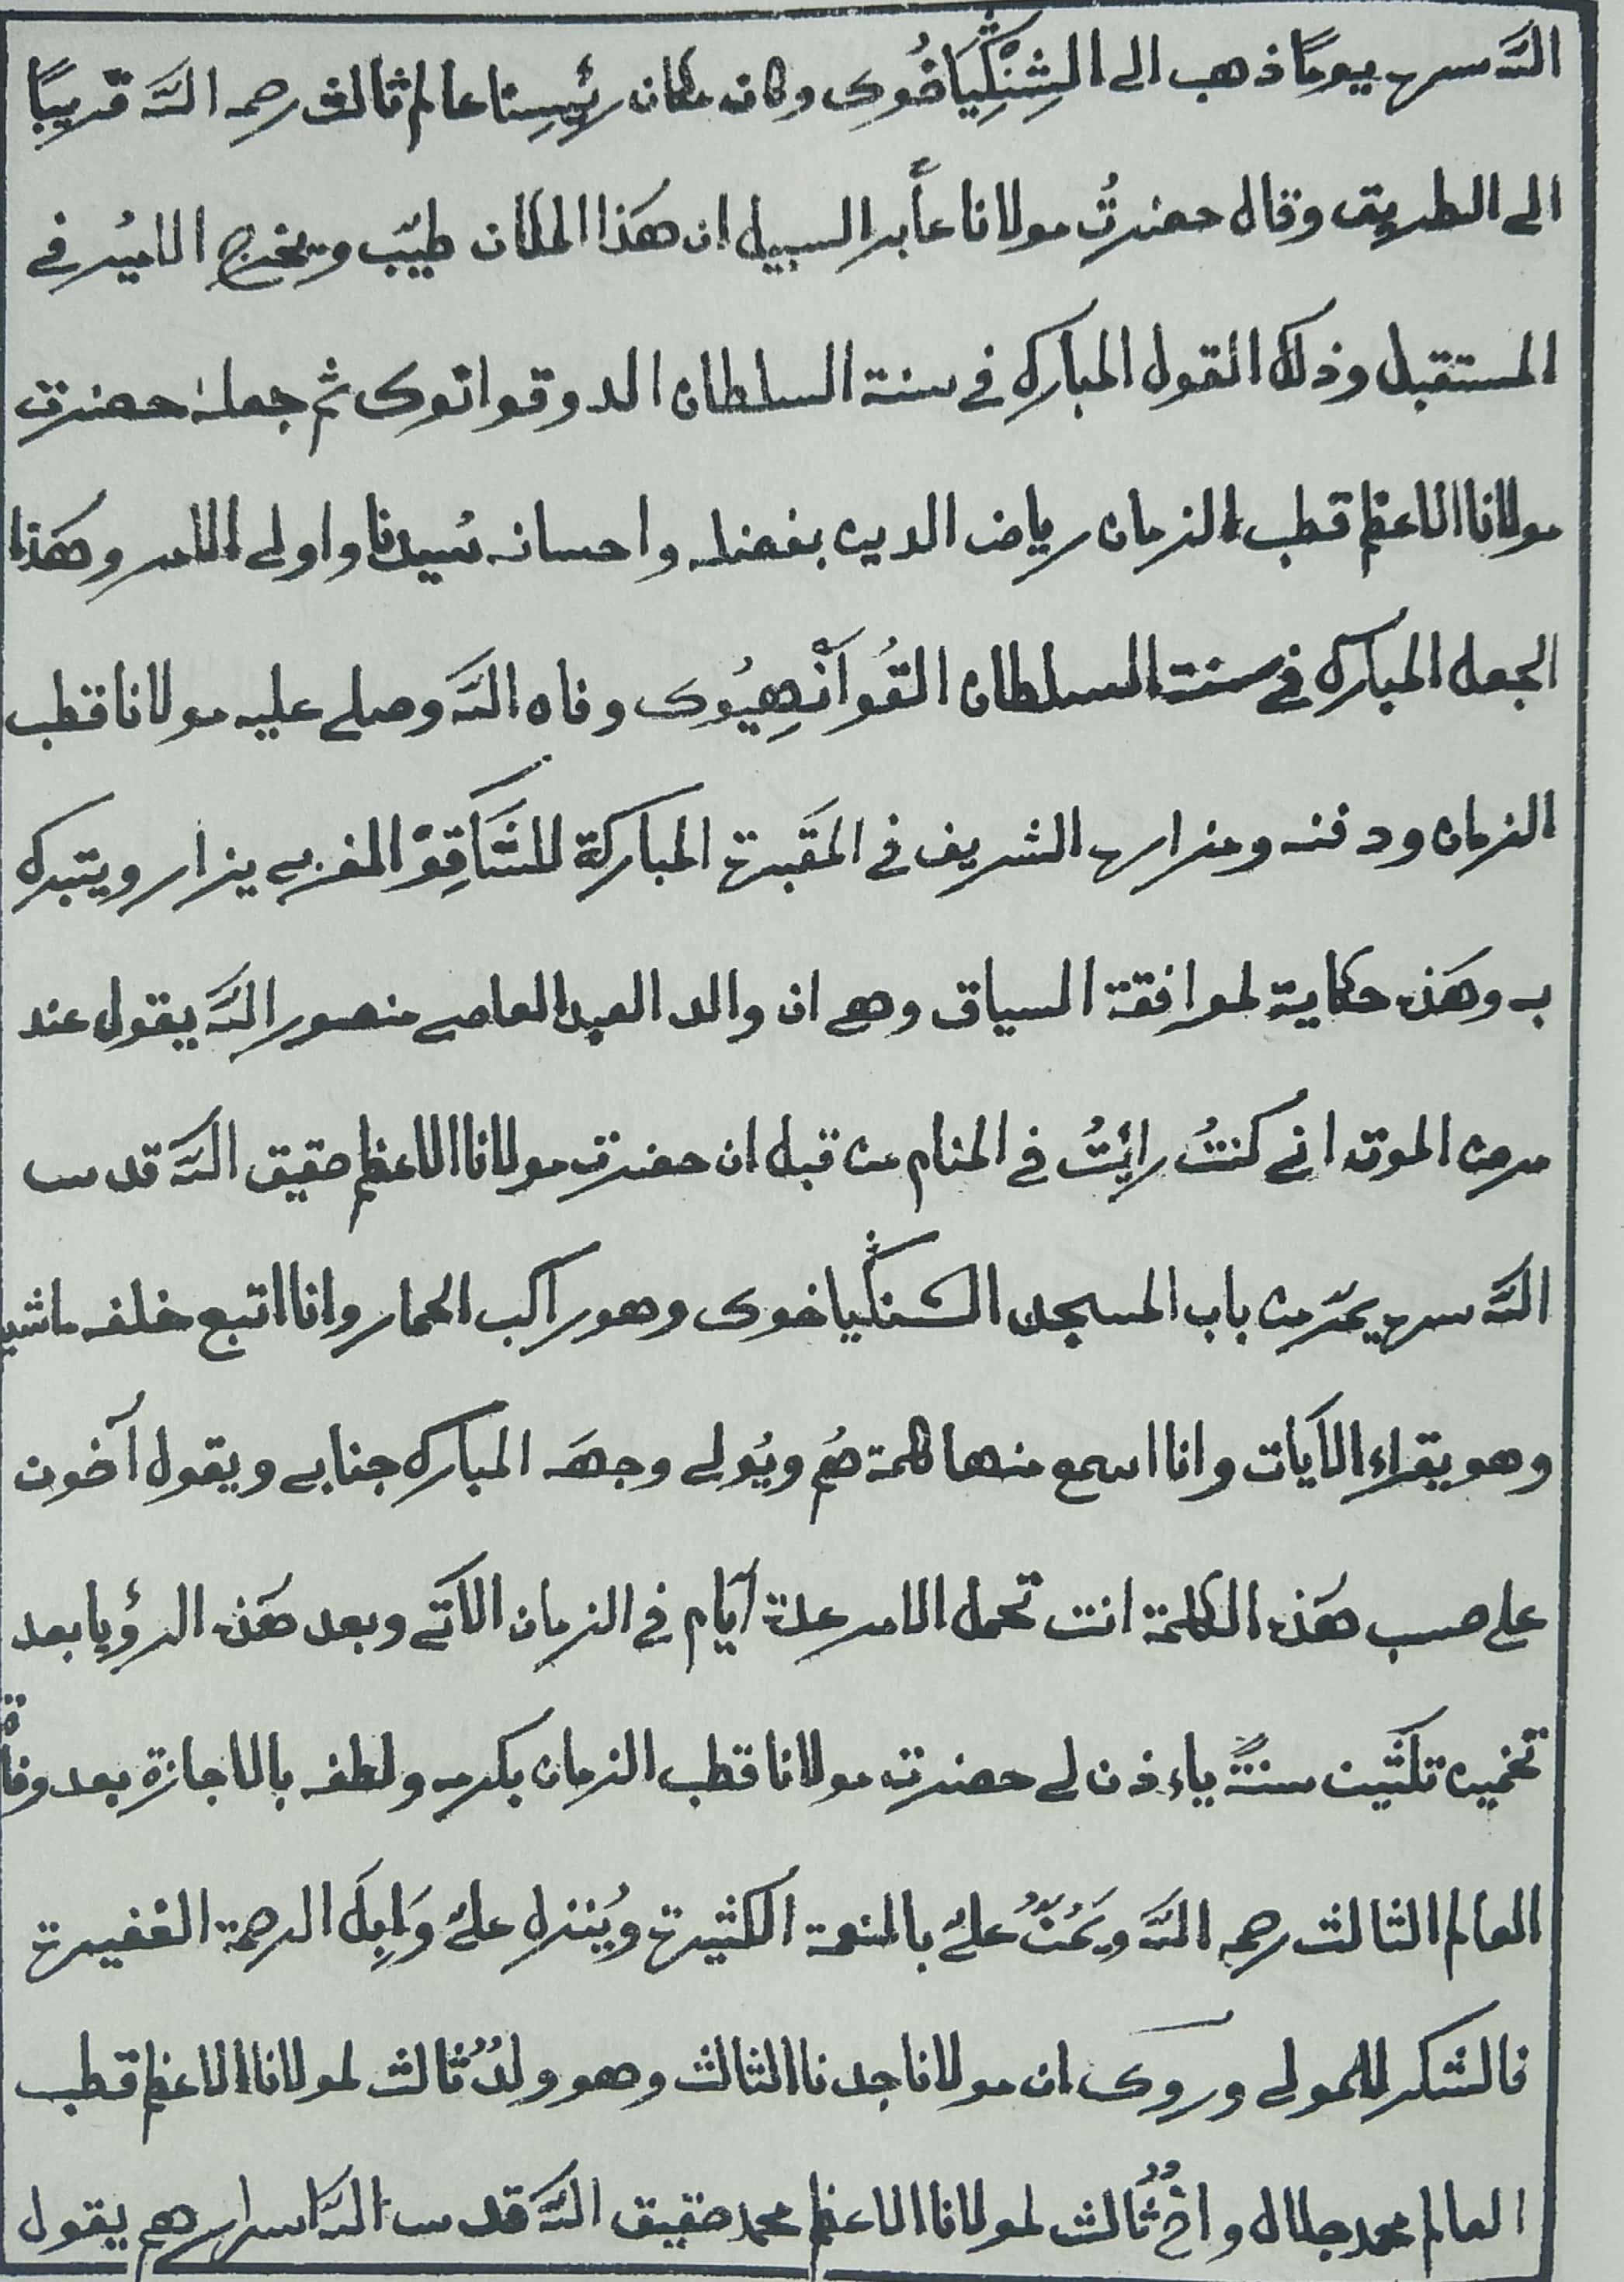 اللّٰه سره يومًا ذهب الى الشِنْكِيَاخُوى وكان مكان رئِيسِنا عالم ثالث رحمه اللّٰه قريبًا
الى الطريق وقال حضرتُ مولانا عأبر السبيل ان هَذا المكان طيّب ويخرج الاميُر في
المستقبل وذلك القول المبارك في سنة السلطان الدوقوانوى ثم جعله حضرت
مولانا الاعظم قطب الزمان رياض الدين بفضله واحسانه سُيدنا واولى الامر وهَذا
الجعل المبارك في سنة السلطان القُوانْهِيُوى وفاه اللّٰه وصلى عليه مولانا قطب
الزمان ودفنه ومزاره الشريف في المَقبرة المباركة للشَاقِوْ المغربي يزار ويتبرك
به وهَذه حكاية لموافقة السياق وهي ان والد العبد العاصي منصور اللّٰه يقول عند
مرض الموت اني كنتُ رايَتُ في المنام من قبل ان حضرت مولانا الاعظم حقيق اللّٰه قدس
اللّٰه سره يمرّ من باب المسجد الشنكياخوى وهو راكب الحمار وانا اتبع خلفه ماشيا
وهو يقراء الآيات وانا اسمع منها كلمة هُم ويُولى وجهَه المبارك جنابي ويقول آخون
على حسب هَذه الكلمة انت تحمل الامر عدة آيام في الزمان الآتي وبعد هَذه الرؤيا بعد
تخمين ثلثين سنتً ياءذن لي حضرت مولانا قطب الزمان بكرمه ولطفه بالاجازة بعد وفاة
العالم الثالث رحمه اللّٰه ويَمُنّ علىّ بالمنعة الكثيرة ويُنزل علىّ وَابِلَ الرحمة الغفيرة
فالشكر للمولى وروى ان مولانا جدنا الثالث وهو ولدٌ ثالث لمولانا الاعظم قطب
العالم محمد جلال واخٌ ثالث لمولانا الاعظم محمد حقيق اللّٰه قدس اللّٰه اسرارهم يقول